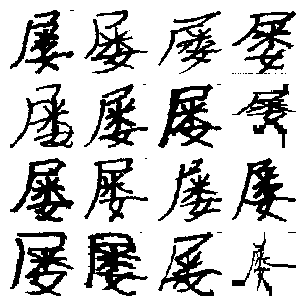 屡屡屡屡
屡屡屡屡
屡屡屡屡
屡屡屡屡